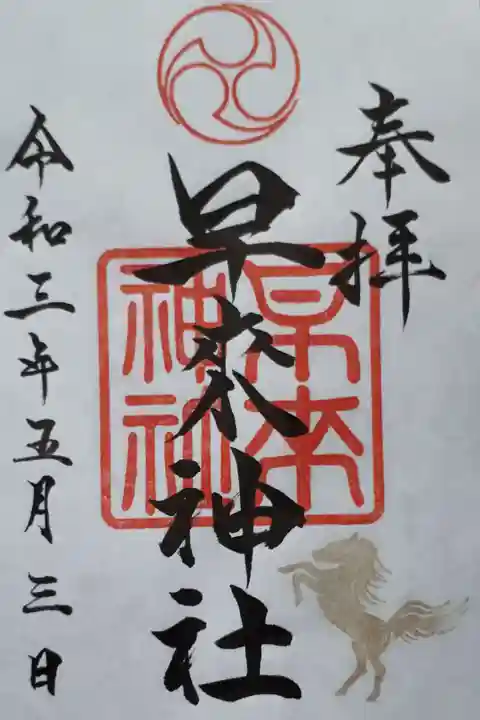 奉拝
早來神社
早来
神社
令和三年五月三日